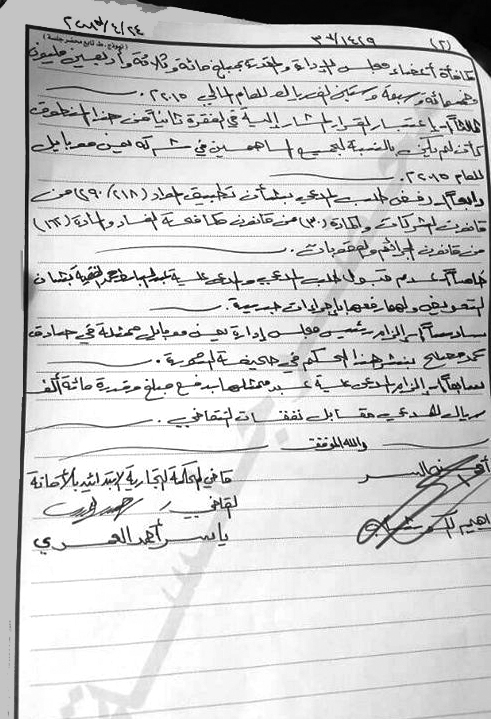 (٢) ٣٠/١٤٢٩ ٢٠٢٣/٤/٢٤
(نموذج ط تابع محضر جلسة)
مكافأة أعضاء مجلس الإدارة والمقدرة بمبلغ مائة وثلاثة وأربعين مليون
وخمسمائة وسبعة وستين ألف ريال للعام المالي ٢٠١٥م.
ثالثاً:- اعتبار القرار المشار إليه في الفقرة ثانياً من هذا المنطوق
كأن لم يكن بالنسبة لجميع المساهمين في شركة يمن موبايل
للعام ٢٠١٥م.
رابعاً:- رفض طلب المدعي بشأن تطبيق المواد (٢١٨/٢٩٠) من
قانون الشركات والمادة (٣٠) من قانون مكافحة الفساد والمادة (١٦٢)
من قانون الجرائم والعقوبات.
خامساً:- عدم قبول طلب المدعي والمدعى عليه عبدالباسط محمد الفقيه بشأن
التعويض ولهما رفعها بإجراءات جديدة.
سادساً:- إلزام رئيس مجلس إدارة يمن موبايل ممثلة في صادق
محمد مصلح بنشر هذا الحكم في صحيفة الثورة.
سابعاً:- إلزام المدعى عليه عبر ممثلها بدفع مبلغ وقدره مائة ألف
ريال للمدعي مقابل نفقات التقاضي.
والله الموفق
أمين السر قاضي المحكمة التجارية الابتدائية بالأمانة
القاضي/
ياسر أحمد العمدي